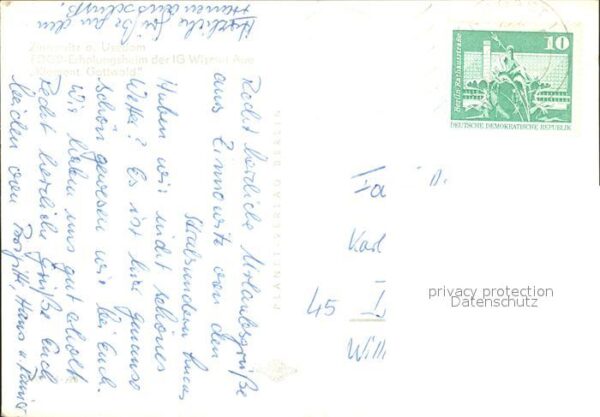 Herzliche Grüße an den
Zinnowitz a. Usedom
FDGB-Erholungsheim der IG Wismut Aue
"Klement Gottwald"
Recht herzliche Urlaubsgrüße
aus Zinnowitz von den
Stralsundern
Haben wir nicht schönes
Wetter? Es ist hier genauso
schön gewesen wie bei Euch.
Wir haben uns gut erholt
Recht herzliche Grüße Euch
beiden von Brigitte, Hans u.
PLANET-VERLAG BERLIN
Berlin, Rathausstraße
10
DEUTSCHE DEMOKRATISCHE REPUBLIK
Fa
Karl
45
Will
privacy protection
Datenschutz